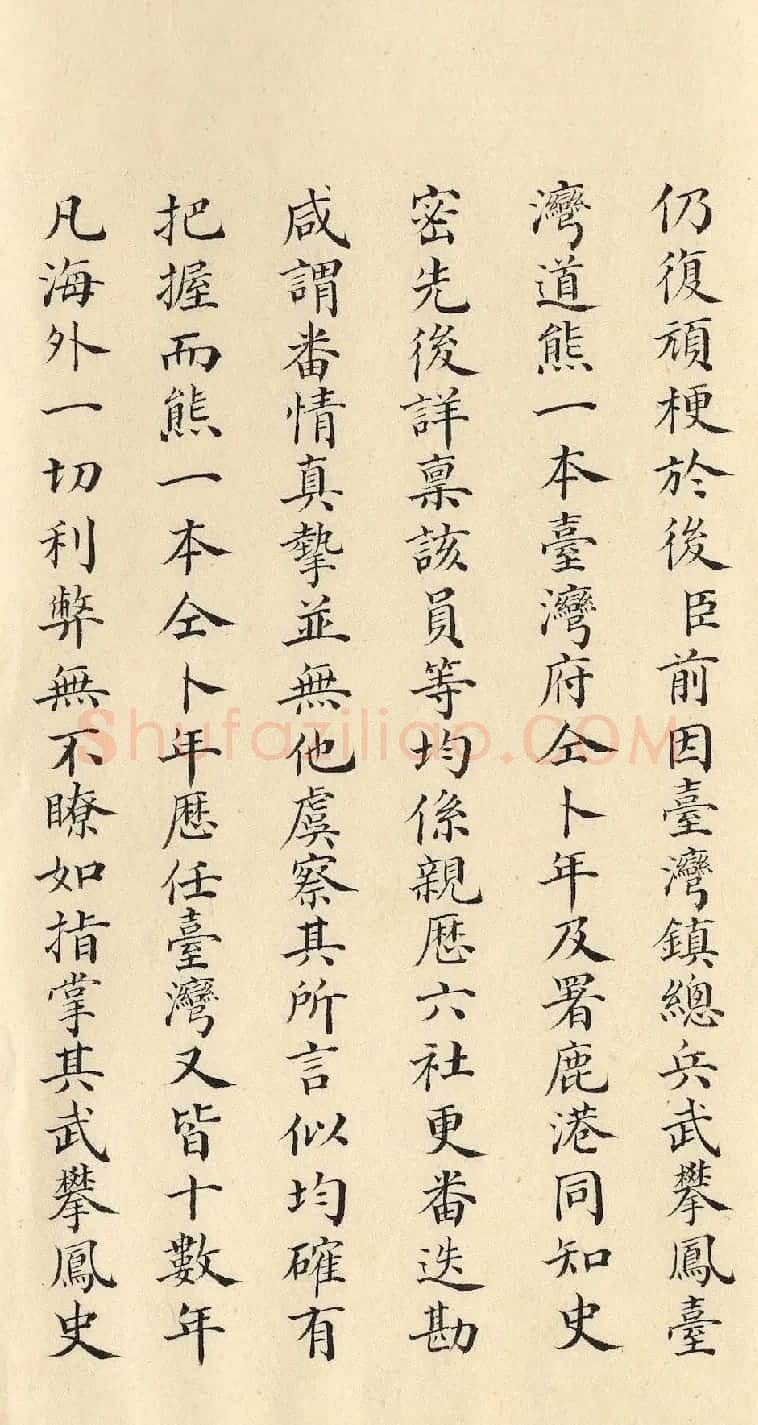 仍復頑梗於後臣前因臺灣鎮總兵武攀鳳臺
灣道熊一本臺灣府仝卜年及署鹿港同知史
密先後詳稟該員等均係親歷六社更番迭勘
咸謂番情真摯並無他虞察其所言似均確有
把握而熊一本仝卜年歷任臺灣又皆十數年
凡海外一切利弊無不瞭如指掌其武攀鳳史
Shufaziliao.COM